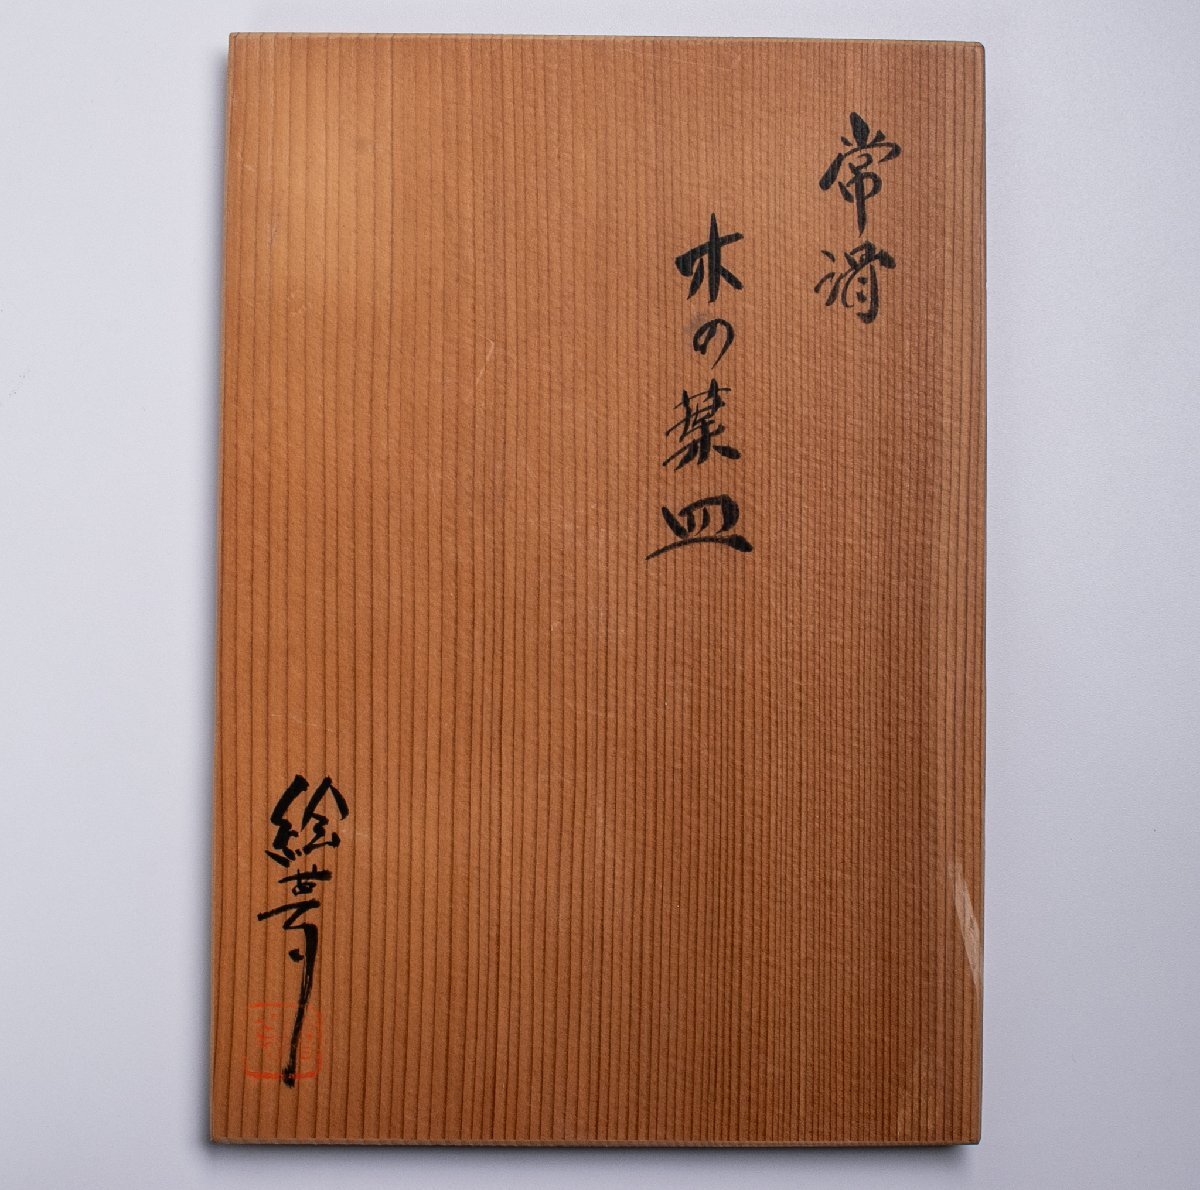 常滑
木の葉皿
絵夢